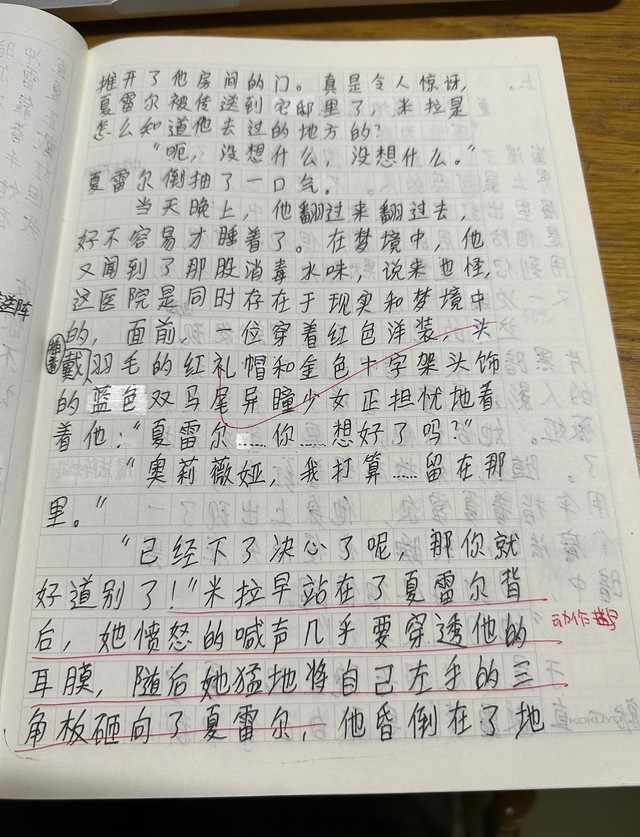 推开了他房间的门。真是令人惊讶，
夏雷尔被传送到宅邸里了，米拉是
怎么知道他去过的地方的？
“呃，没想什么，没想什么。”
夏雷尔倒抽了一口气。
当天晚上，他翻过来翻过去，
好不容易才睡着了。在梦境中，他
又闻到了那股消毒水味，说来也怪，
这医院是同时存在于现实和梦境中
的，面前，一位穿着红色洋装，头
戴羽毛的红礼帽和金色十字架头饰
的蓝色双马尾异瞳少女正担忧地看
着他：“夏雷尔……你……想好了吗？”
“奥莉薇娅，我打算……留在那
里。”
“已经下了决心了呢，那你就
好道别了！”米拉早站在了夏雷尔背
后，她愤怒的喊声几乎要穿透他的
动作描写
耳膜，随后她猛地将自己左手的三
角板砸向了夏雷尔，他昏倒在了地